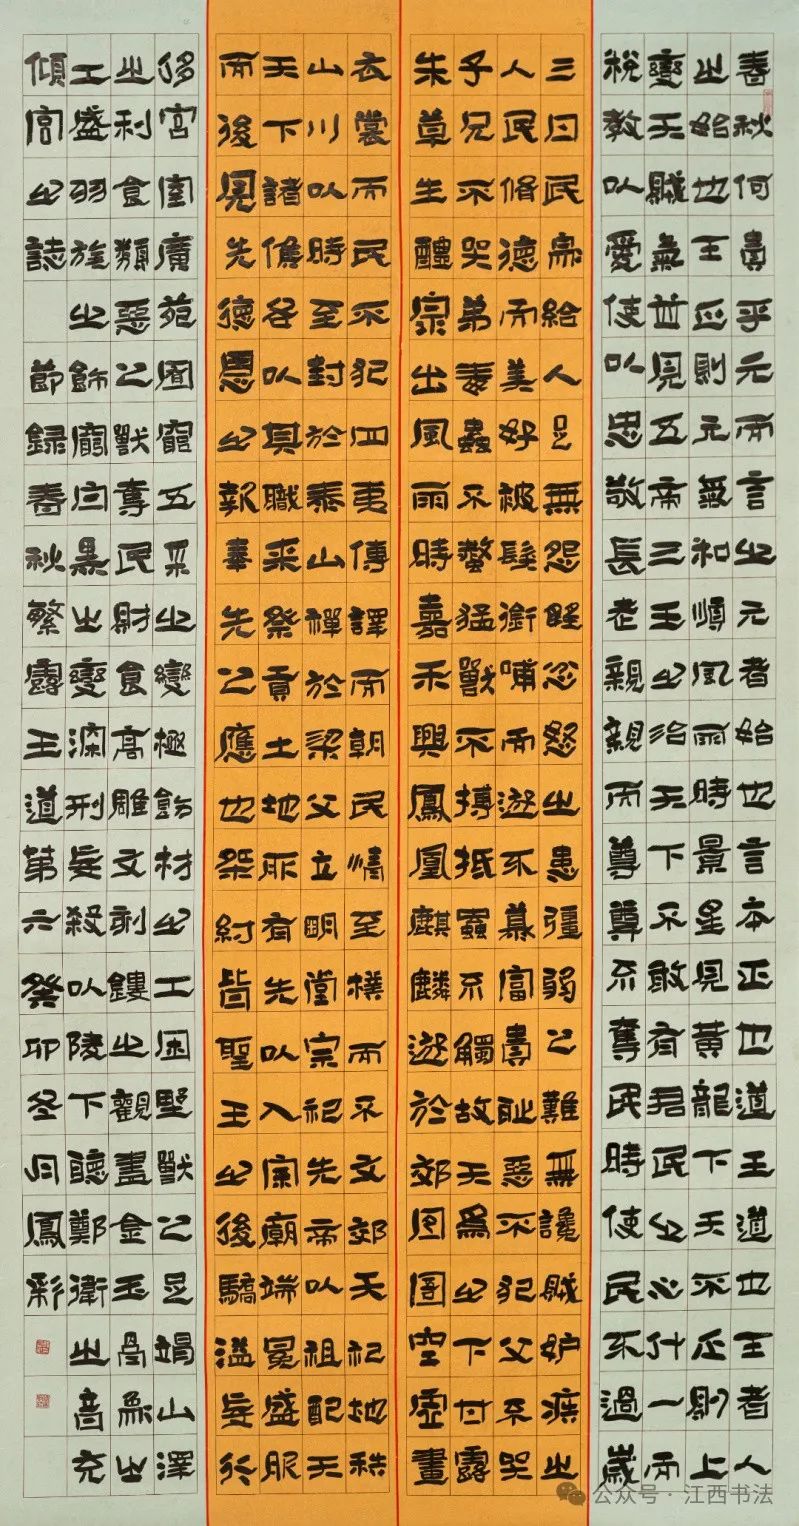 春秋何貴乎元而言之元者始也言本正也道王道也王者人
之始也王正則元氣和順風雨時景星見黃龍下天不正則上
變天賊氣並見五帝三王之治天下不敢有君民之心什一而
稅教以愛使以忠敬長老親親而尊尊不奪民時使民不過歲
三日民家給人足無怨望忿怒之患彊弱之難無讒賊妒疾之
人民脩德而美好被髮銜哺而遊不慕富貴恥惡不犯父不哭
子兄不哭弟毒蟲不螫猛獸不搏抵蟲不觸故天為之下甘露
朱草生醴泉出風雨時嘉禾興鳳凰麒麟遊於郊囹圄空虛畫
衣裳而民不犯四夷傳譯而朝民情至樸而不文郊天祀地秩
山川以時至封於泰山禪於梁父立明堂宗祀先帝以祖配天
天下諸侯各以其職來祭貢土地所有先以入宗廟端冕盛服
而後見先德恩之報奉先之應也桀紂皆聖王之後驕溢妄行
侈宮室廣苑囿窮五采之變極飾材之工困野獸之足竭山澤
之利食類惡之獸奪民財食高雕文刻鏤之觀盡金玉骨象之
工盛羽旄之飾窮白黑之變深刑妄殺以陵下聽鄭衛之音充
傾宮之誌 節錄春秋繁露王道第六癸卯冬月鳳彩
公众号·江西书法